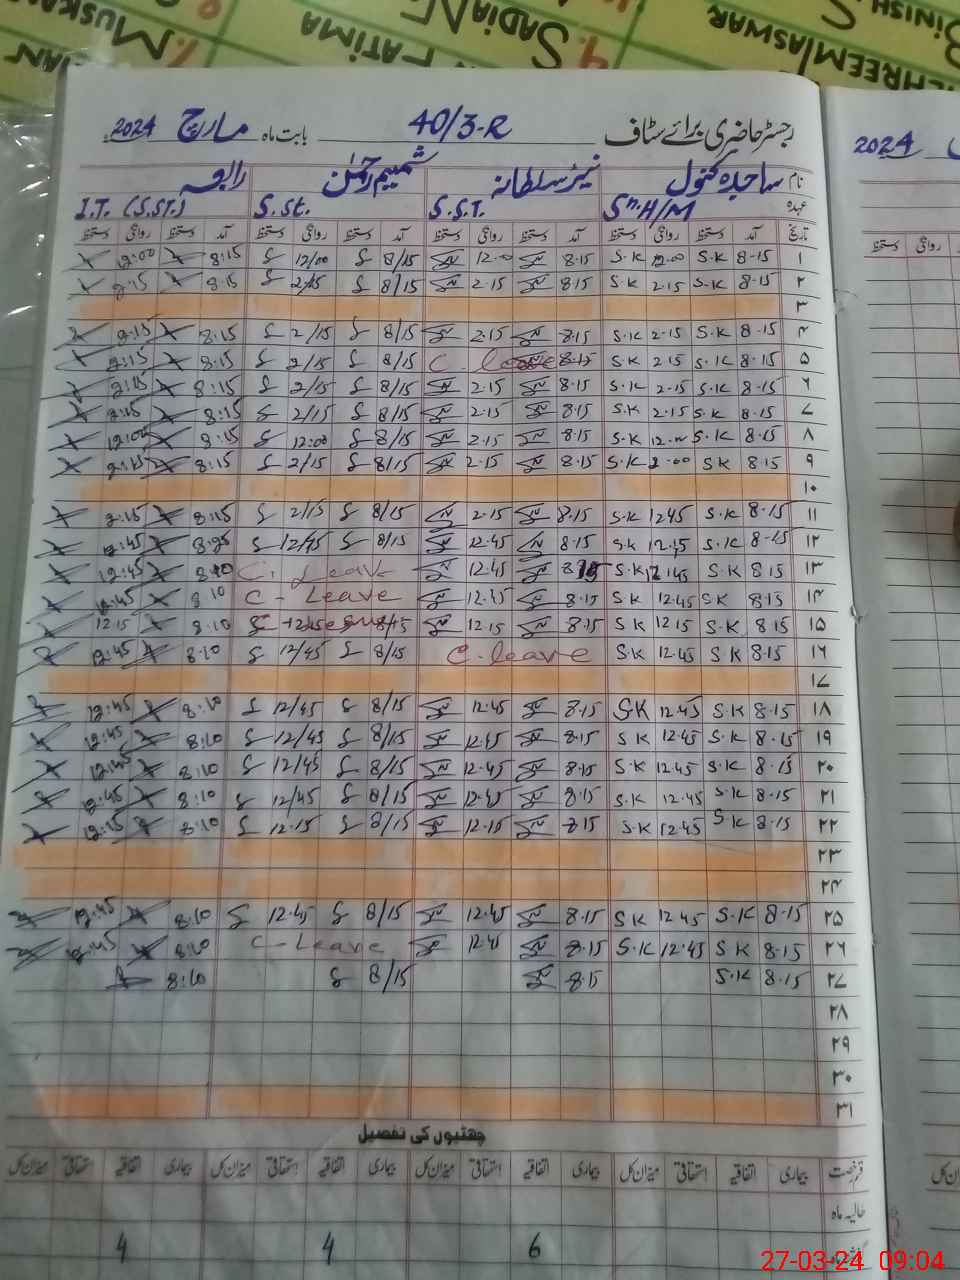 MUSKAN
FATIMA
4. SADIA
MEHREEM ASWAR
BINISH
رجسٹر حاضری برائے سٹاف 40/3-R بابت ماہ مارچ 2024
2024
نام ساجدہ کنول نیئر سلطانہ شمیم رحمٰن رابعہ
عہدہ Sⁿ.H/M S.S.T. S.St. I.T. (S.ST.)
تاریخ آمد دستخط روانگی دستخط آمد دستخط روانگی دستخط آمد دستخط روانگی دستخط آمد دستخط روانگی دستخط
روانگی دستخط
۱ 8-15 S.K 12.00 S.K 8.15 12.00 8/15 12/00 8:15 12:00
۲ 8-15 S.K 2.15 S.K 8.15 2.15 8/15 2/15 8:15 2:15
۳
۴ 8-15 S.K 2.15 S.K 8.15 2.15 8/15 2/15 8:15 2:15
۵ 8-15 S.K 2.15 S.K 8.15 C. leave 8/15 2/15 8:15 2:15
۶ 8-15 S.K 2.15 S.K 8.15 2.15 8/15 2/15 8:15 2:15
۷ 8.15 S.K 2.15 S.K 8.15 2.15 8/15 2/15 8:15 2:15
۸ 8.15 S.K S.K 8.15 2.15 8/15 12:00 8:15 12:00
۹ 8.15 S.K 2.00 S.K 8.15 2.15 8/15 2/15 8:15 2:15
۱۰
۱۱ 8.15 S.K 1245 S.K 8.15 2.15 8/15 2/15 8:15 2:15
۱۲ 8-15 S.K 12.45 S.K 8.15 12.45 8/15 12/45 12:45
۱۳ 8.15 S.K 12.45 S.K 12.45 C. Leave 8:10 12:45
۱۴ 8.15 S.K 12.45 S.K 8.15 12.45 C - Leave 8:10 12:45
۱۵ 8.15 S.K 12.15 S.K 8.15 12.15 8:10 12:15
۱۶ 8.15 S.K 12.45 S.K C. leave 8/15 12/45 8:10 12:45
۱۷
۱۸ 8.15 S.K 12.45 S.K 8.15 12.45 8/15 12/45 8:10 12:45
۱۹ 8.15 S.K 12.45 S.K 8.15 12.45 8/15 12/45 8:10 12:45
۲۰ 8.15 S.K 12.45 S.K 8.15 12.45 8/15 12/45 8:10 12:45
۲۱ 8.15 S.K 12.45 S.K 8.15 12.45 8/15 12/45 8:10 12:45
۲۲ 8.15 S.K 12.45 S.K 8.15 12.15 8/15 12.15 8:10 12:15
۲۳
۲۴
۲۵ 8.15 S.K 12.45 S.K 8.15 12.45 8/15 12.45 8:10 12:45
۲۶ 8.15 S.K 12.45 S.K 8.15 12.45 C - Leave 8:10 12:45
۲۷ 8.15 S.K 8.15 8/15 8:10
۲۸
۲۹
۳۰
۳۱
چھٹیوں کی تفصیل
قسم رخصت بیماری اتفاقیہ استحقاقی میزان کل بیماری اتفاقیہ استحقاقی میزان کل بیماری اتفاقیہ استحقاقی میزان کل بیماری اتفاقیہ استحقاقی میزان کل
حالیہ ماہ
6 4 4
27-03-24 09:04